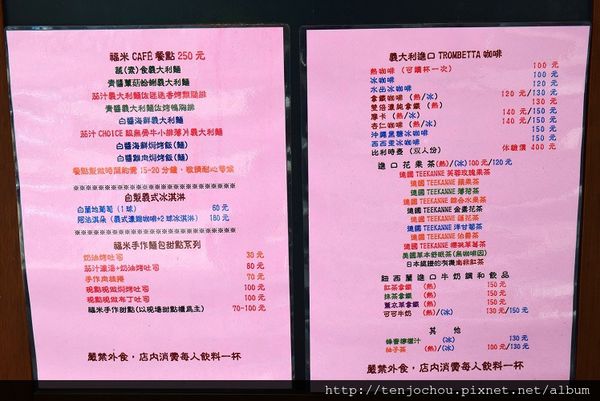 福米 CAFE 餐點 250 元
蔬(素)食義大利麵
青醬蘑菇蛤蜊義大利麵
茄汁義大利麵佐迷迭香烤雞腿排
青醬義大利麵佐烤鴨胸排
白醬海鮮義大利麵
茄汁 CHOICE 級無骨牛小排薄片義大利麵
白醬海鮮焗烤飯(麵)
白醬雞肉焗烤飯(麵)
餐點製做時間約需 15-20 分鐘，敬請耐心等候
自製義式冰淇淋
白蘭地葡萄 (1球) 60 元
阿法淇朵 (義式濃縮咖啡+2球冰淇淋) 180 元
福米手作麵包甜點系列
奶油烤吐司 30 元
茄汁濃湯+奶油烤吐司 70 元
手作肉桂捲 70 元
現點現做焗烤吐司 100 元
現點現做布丁吐司 100 元
福米手作甜點(以現場甜點櫃為主) 70-100 元
嚴禁外食，店內消費每人飲料一杯
義大利進口 TROMBETTA 咖啡
熱咖啡 (可續杯一次) 100 元
冰咖啡 100 元
水出冰咖啡 120 元
拿鐵咖啡 (熱)/(冰) 120 元/130 元
雙倍濃純拿鐵 (熱) 130 元
摩卡 (熱)/(冰) 140 元/150 元
杏仁咖啡 (熱)/(冰) 140 元/150 元
沖繩黑糖冰咖啡 150 元
西西里冰咖啡 150 元
比利時壺 (双人份) 体驗價 400 元
進口花果茶(熱)/(冰)100 元/120 元
德國 TEEKANNE 芙蓉玫瑰果茶
德國 TEEKANNE 蘋果茶
德國 TEEKANNE 薄荷茶
德國 TEEKANNE 綜合水果茶
德國 TEEKANNE 金盞花茶
德國 TEEKANNE 蓮花茶
德國 TEEKANNE 洋甘菊茶
德國 TEEKANNE 伯爵茶
德國 TEEKANNE 櫻桃草莓茶
美國草本舒眠茶(無咖啡因)
日本國際的有機南非紅茶
紐西蘭進口牛奶調和飲品
紅茶拿鐵 (熱) 150 元
抹茶拿鐵 (熱) 150 元
薑京茶拿鐵 (熱) 150 元
可可牛奶 (熱)/(冰) 130 元/150 元
其 他
蜂蜜檸檬汁 (冰) 130 元
柚子茶 (熱)/(冰) 100 元/130 元
嚴禁外食，店內消費每人飲料一杯
http://tenjochou.pixnet.net/album